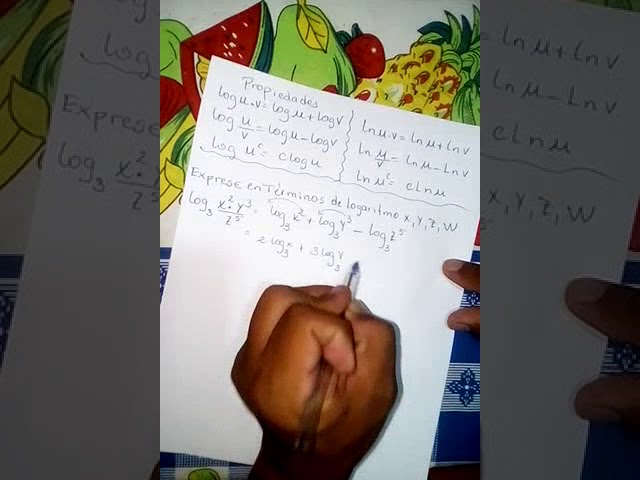 Propiedades
log μ.v = log μ + log v
log μ/v = log μ - log v
log μ^c = c log μ
ln μ.v = ln μ + ln v
ln μ/v = ln μ - ln v
ln μ^c = c ln μ
Exprese en Términos de logaritmo x, y, z, w
log₃ x²·y³/z⁵ = log₃ x² + log₃ y³ - log₃ z⁵
= 2 log₃ x + 3 log₃ y